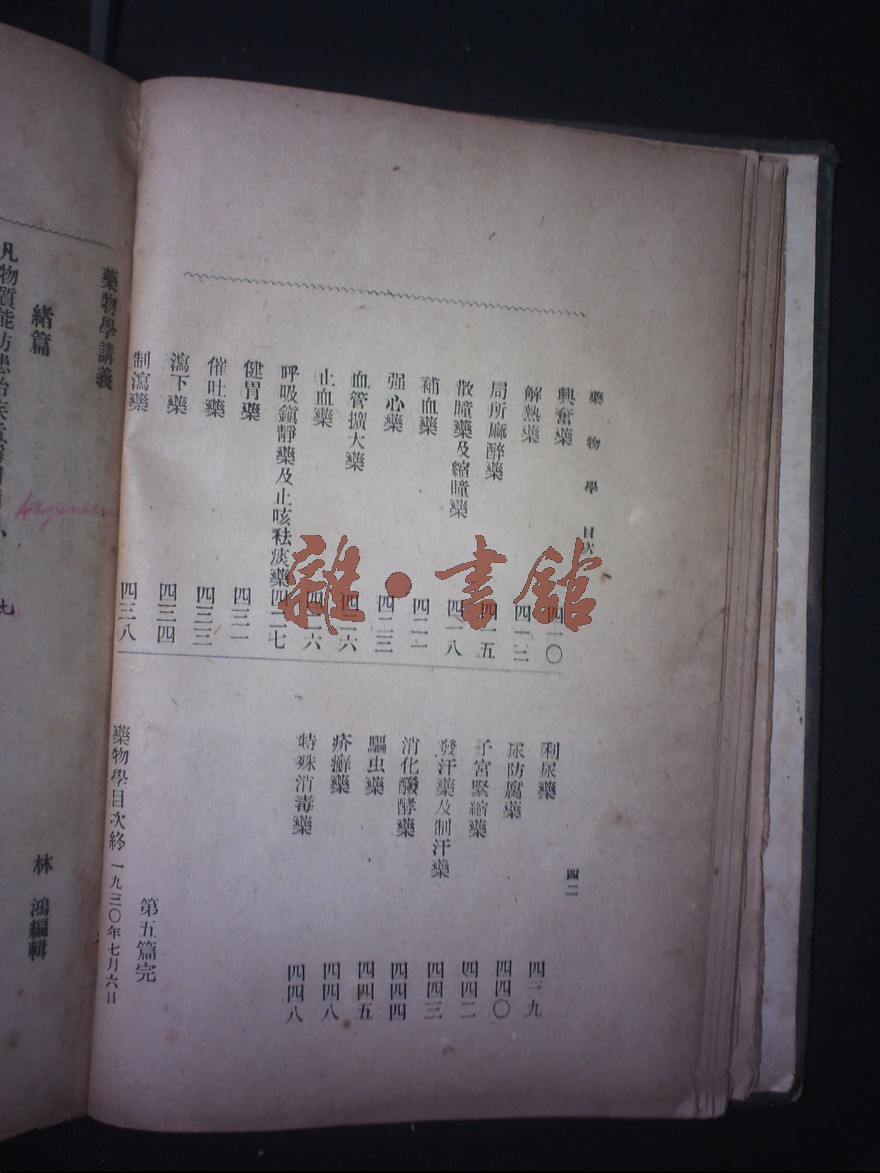 藥物學目次
四二
興奮藥 四一〇
解熱藥 四一三
局所麻醉藥 四一五
散瞳藥及縮瞳藥 四一八
補血藥 四二一
强心藥 四二三
血管擴大藥 四二六
止血藥 四二六
呼吸鎮靜藥及止咳祛痰藥 四二七
健胃藥 四三一
催吐藥 四三三
瀉下藥 四三四
制瀉藥 四三八
利尿藥 四三九
尿防腐藥 四四〇
子宮緊縮藥 四四二
發汗藥及制汗藥 四四三
消化醱酵藥 四四四
驅虫藥 四四五
疥癬藥 四四八
特殊消毒藥 四四八
第五篇完
藥物學目次終 一九三〇年七月六日
藥物學講義
緒篇
林 鴻編輯
凡物質能
雜·書館